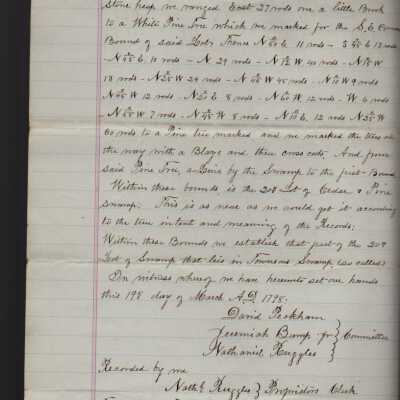 Stone heap we ranged East 27 rods over a little Brook
to a White Pine Tree which we marked for the S.E. Corner
Bound of said Lot; Thence N E 11 rods - S E 13 rods
- N E 11 rods - N. 29 rods - N W 40 rods - N W
18 rods - N W 24 rods - N W 45 rods - N W 9 rods
N W 12 rods - N E 8 rods - N W 12 rods - W 6 rods
- N W 7 rods - N W 8 rods - N E 12 rods N W
60 rods to a Pine tree marked and we marked the trees on
the way with a Blaze and three cross cuts. And from
said Pine Tree, a Line by the Swamp to the first Bound
Within these bounds, is the 20 Lot of Cedar & Pine
Swamp: This is as near as we could get it according
to the true intent and meaning of the Records:
Within these Bounds we establish that part of the 20
Lot of Swamp that lies in Swamp (so called)
In witness whereof we have hereunto set our hands
this 19 day of March A.D. 1798.
David Peckham
Jeremiah Bump Jr } Committee
Nathaniel Ruggles
Recorded by me
Nath'l Ruggles } Proprietors Clerk